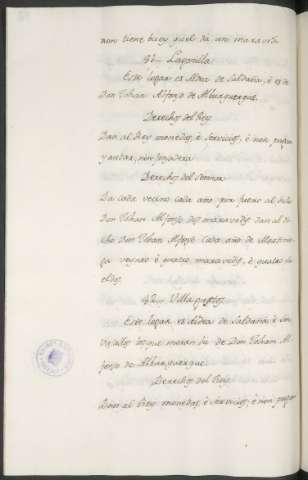 non tiene buey, quel dá un maravedi.
Lagunilla.
Este lugar es Aldea de Saldaña, é es de
Don Johan Alfonso de Alburquerque.
Derechos del Rey.
Dan al Rey monedas, é servicios, é non pagan
yantar, nin fonsadera.
Derechos del Sennor.
Da cada vecino cada año por fuero al dicho
Don Johan Alfonso dos maravedis, dan al di-
cho Don Johan Alfonso cada año de Martinie-
ga veynte é quatro maravedis, é quatro su-
eldos.
Villa
Este lugar es Aldea de Saldaña, é son
vasallos los que moran de Don Johan Al-
fonso de Alburquerque.
Derechos del Rey.
Dan al Rey monedas, é servicios, é non pagan